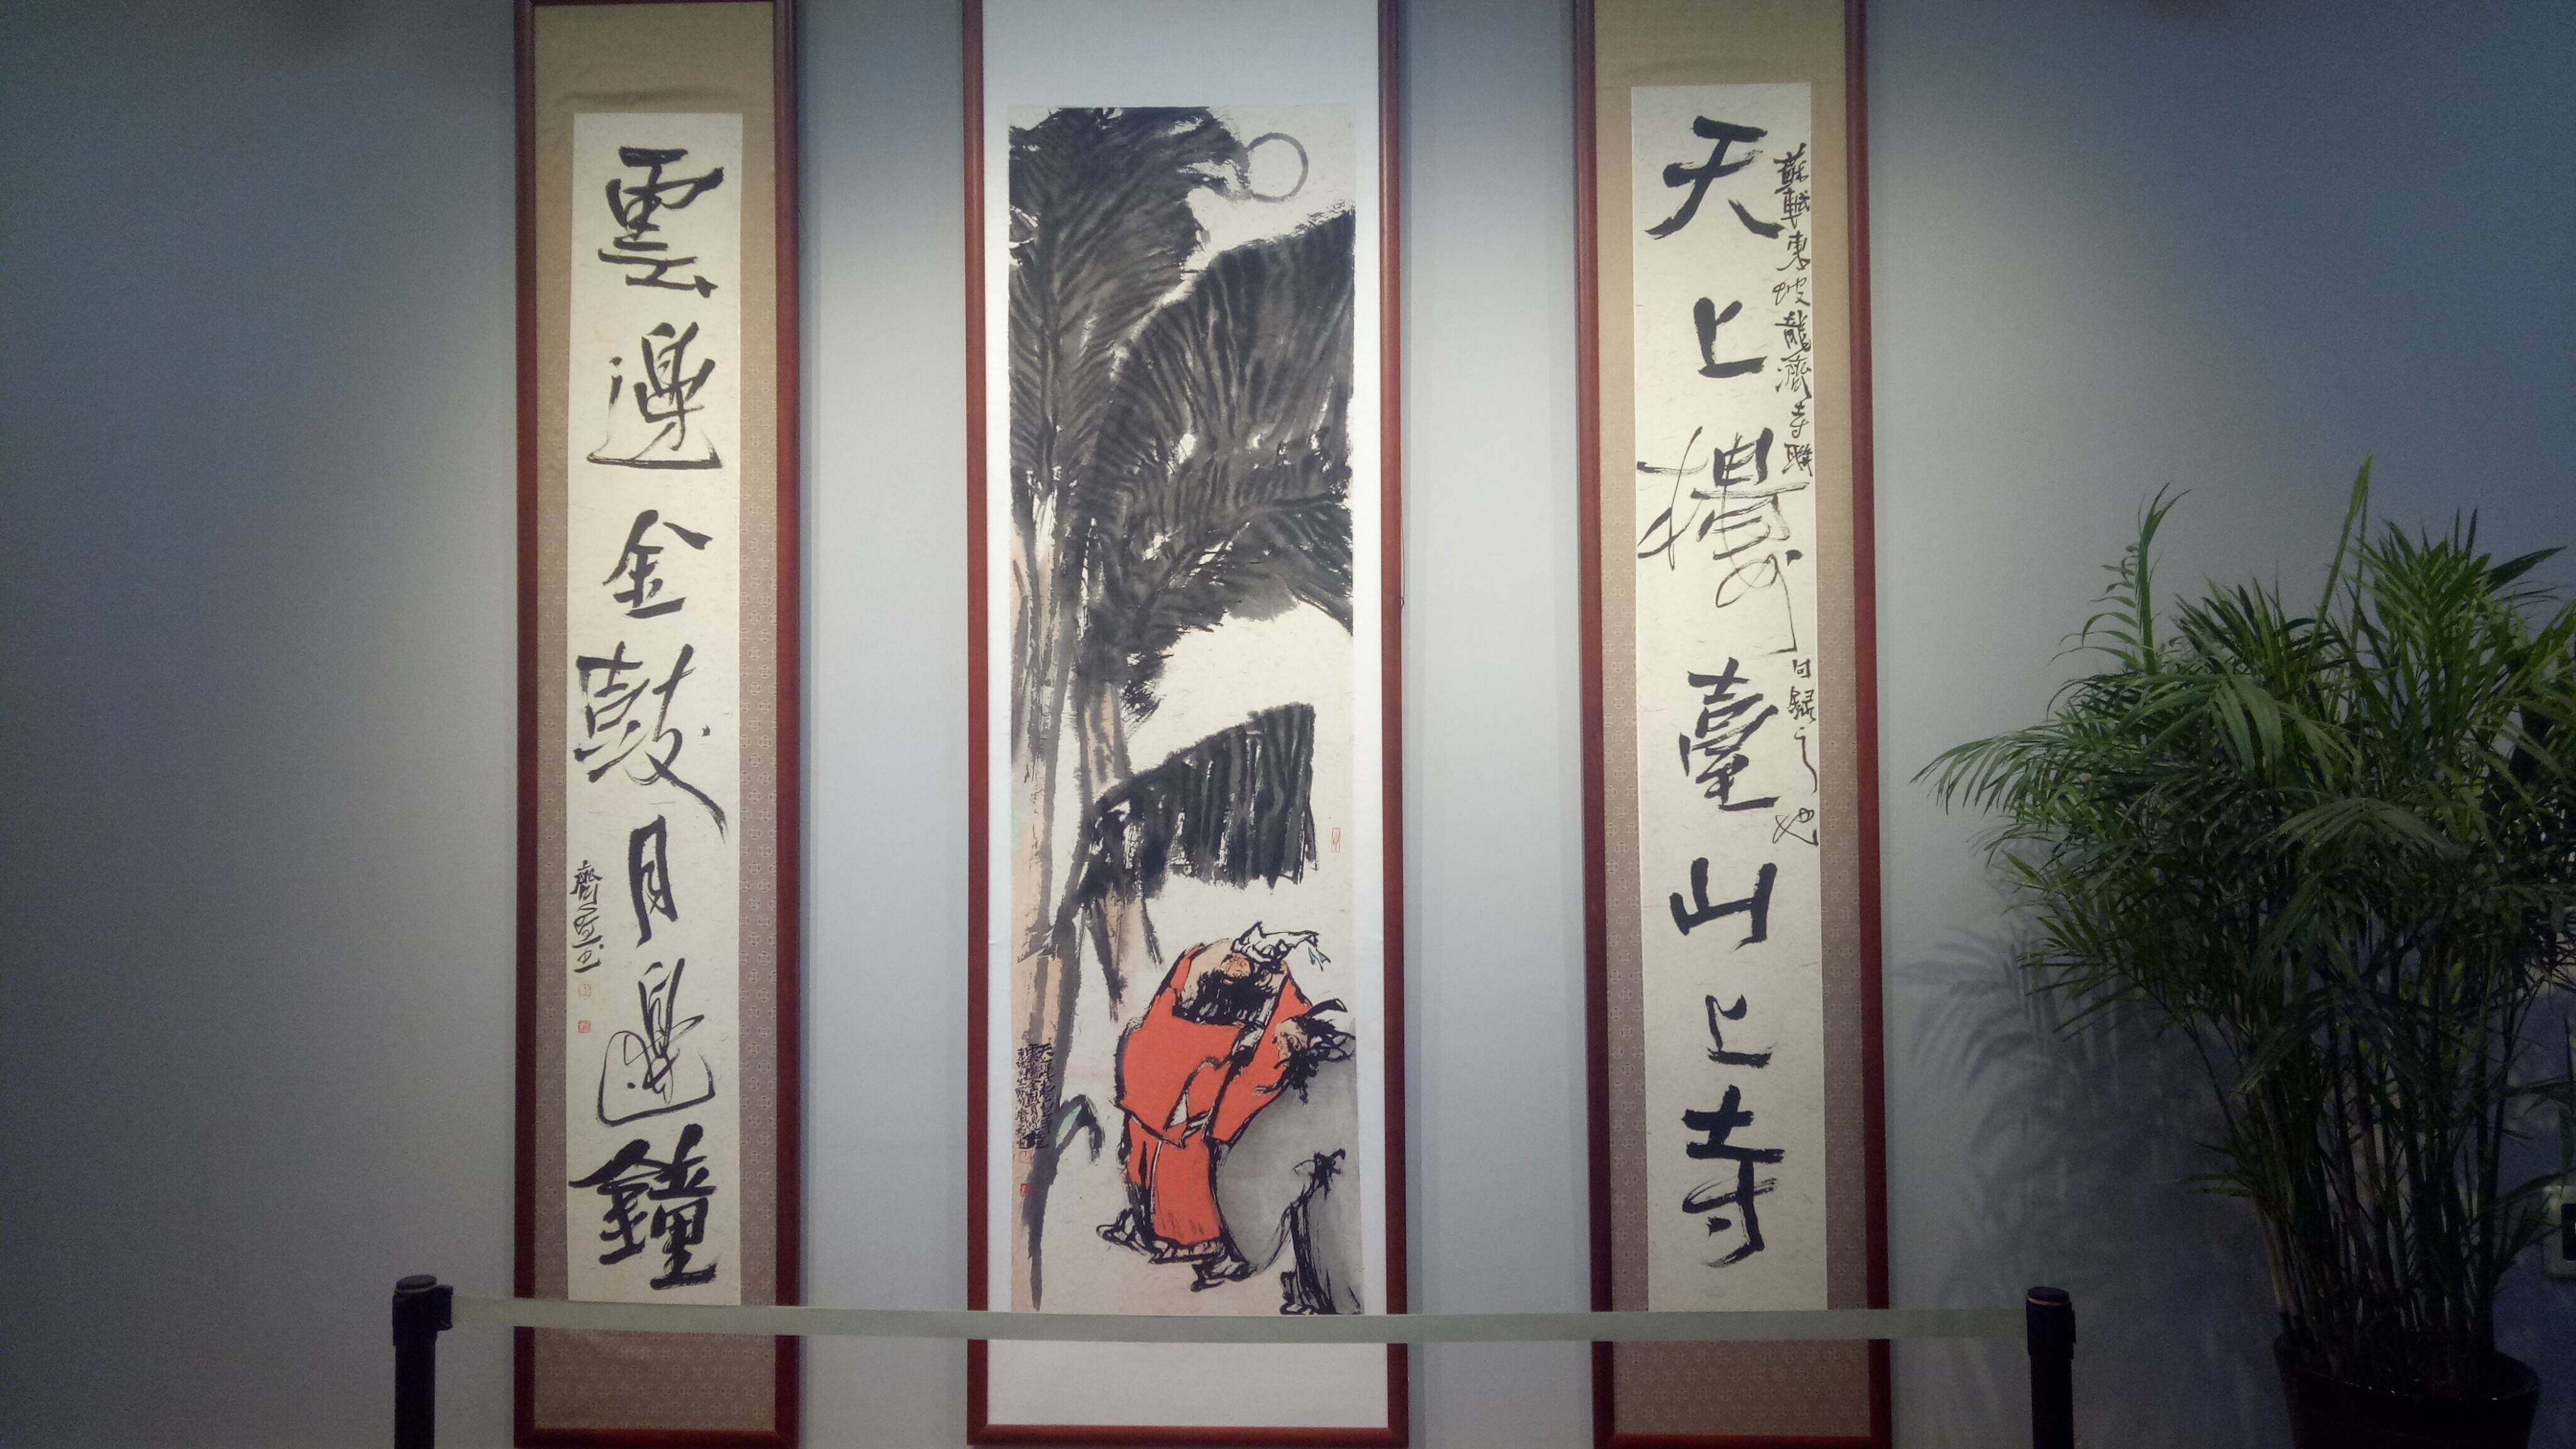 天上樓臺山上寺
蘇軾東坡龍濟寺聯
句録之也
雲邊金鼓月邊鐘